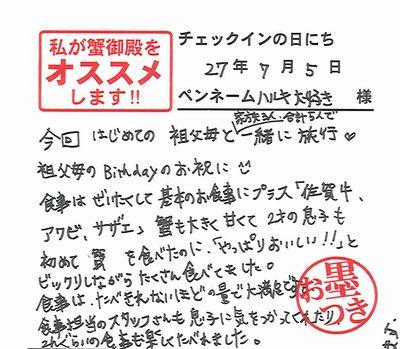 私が蟹御殿を
オススメ
します!!
チェックインの日にち
27年7月5日
ペンネーム ハルキ大好き 様
家族3人、合計5人で
今回 はじめての 祖父母と一緒に旅行♡
祖父母のBirthdayのお祝に
食事はぜいたくして基本のお食事にプラス「佐賀牛、
アワビ、サザエ」蟹も大きく甘くて2才の息子も
初めて 蟹 を食べたのに、「やっぱりおいしい!!」と
ビックリしながらたくさん食べてました。
食事は、たべきれないほどの量で大満足です
食事担当のスタッフさんも息子に気をつかってくれたり、
の食事も楽しくたべれました。
お墨つき